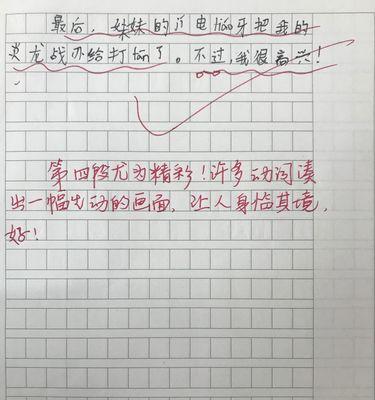 最后，妹妹的闪电liáo牙把我的
炎龙战斧给打fān了。不过，我很高兴！
第四段尤为精彩！许多动词读
出一幅生动的画面，让人身临其境，
好！